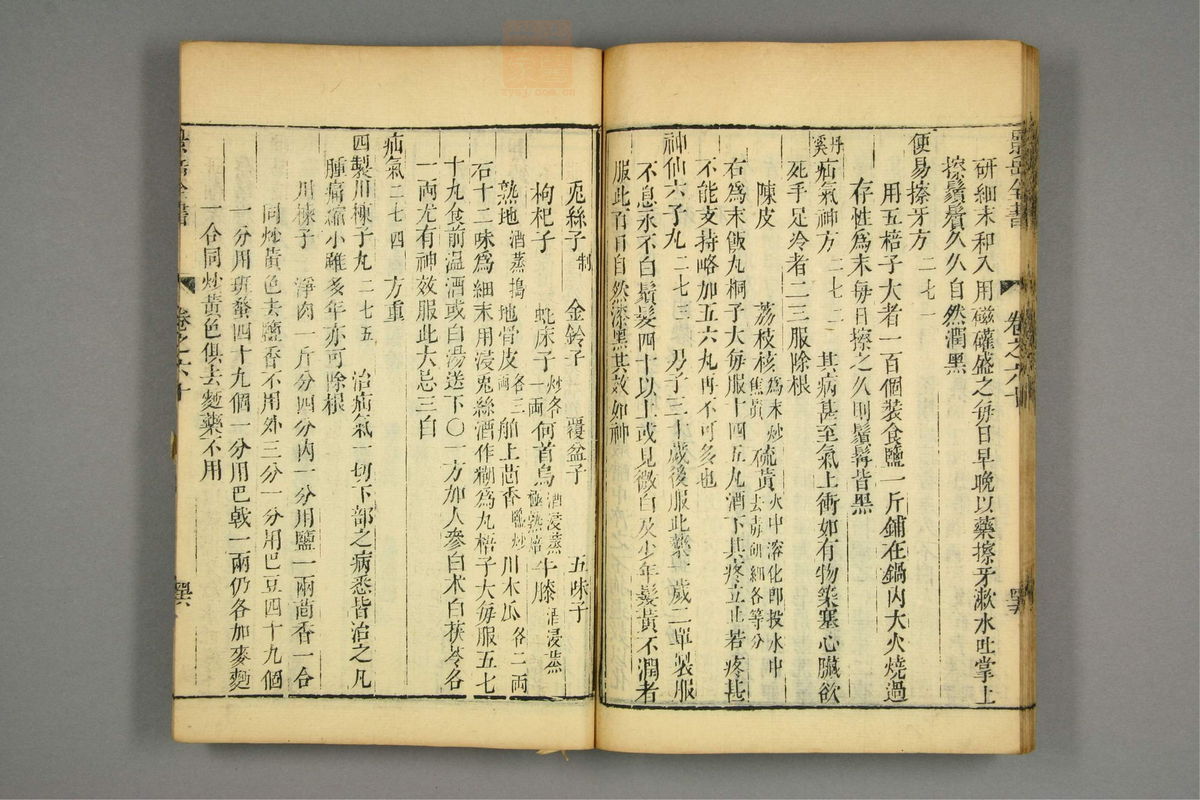 景岳全書 卷之六十
研細末和入用磁確盛之每日早晚以藥擦牙漱水吐掌上
擦鬚鬢久久自然潤黑
便易擦牙方 二七一
用五棓子大者一百個裝食鹽一斤鋪在鍋內大火燒過
存性為末每日擦之久則鬚髯皆黑
丹溪疝氣神方 二七二 其病甚至氣上衝如有物築塞心臟欲
死手足冷者二三服除根
陳皮 荔枝核為末炒焦黃 硫黃火中溶化卽投水中去毒研細各等分
右為末飯丸桐子大每服十四五丸酒下其疼立止若疼甚
不能支持略加五六丸再不可多也
神仙六子丸 二七三 男子三十歲後服此藥 歲二單製服
不息永不白鬚髮四十以上或見微白及少年髮黃不潤者
服此百日自然漆黑其效如神
兎絲子制 金鈴子 覆盆子 五味子
枸杞子 蛇床子炒各一兩 何首烏酒浸蒸極熟焙 牛膝酒浸蒸
熟地酒蒸搗 地骨皮各三兩 舶上茴香鹽炒 川木瓜各二兩
石十二味為細末用浸兎絲酒作糊為丸梧子大每服五七
十丸食前溫酒或白湯送下○一方加人參白朮白茯苓各
一兩尤有神效服此大忌三白
疝氣 二七四 方重
四製川楝子丸 二七五 治疝氣一切下部之病悉皆治之凡
腫痛縮小雖多年亦可除根
川楝子 淨肉一斤分四分內一分用鹽一兩茴香一合
同炒黃色去鹽香不用外三分一分用巴豆四十九個
一分用班蝥四十九個一分用巴戟一兩仍各加麥麪
一合同炒黃色俱去麪藥不用
景岳全書 卷之六十